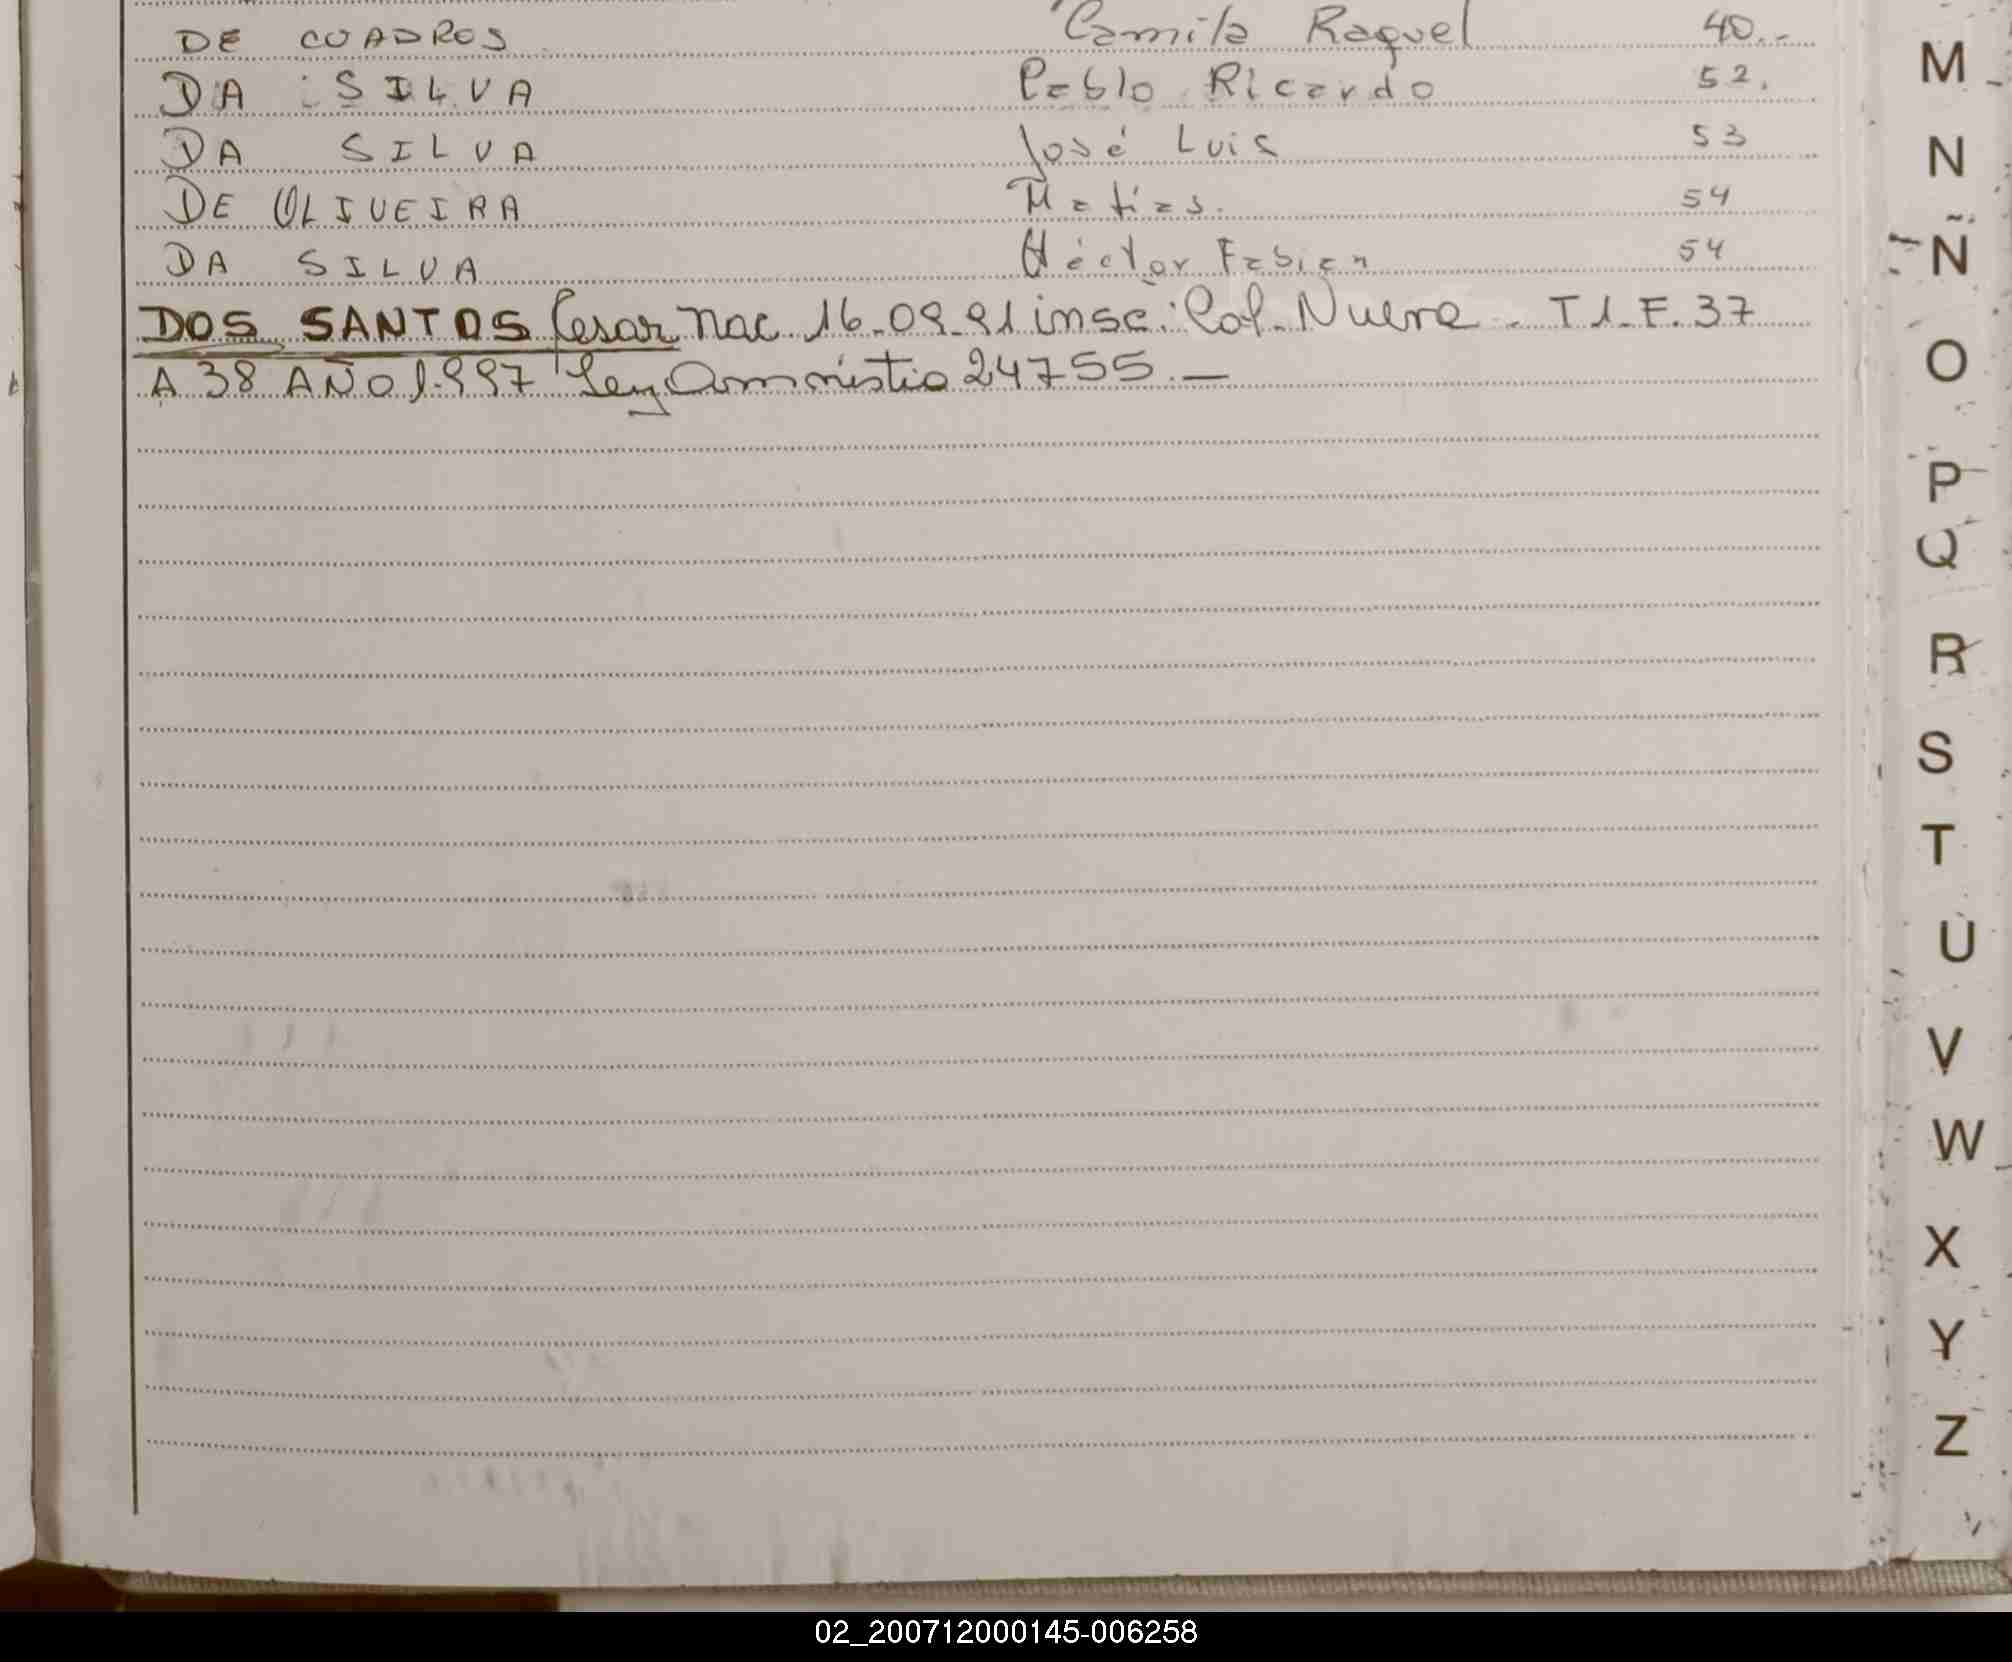 DE CUADROS Camila Raquel 40.-
DA SILVA Pablo Ricardo 52.
DA SILVA José Luis 53
DE OLIVEIRA Matías. 54
DA SILVA Héctor Fabian 54
DOS SANTOS Cesar Nac 16-09-91 insc. Col. Nueva - T1-F.37
A 38 AÑO 1.997 Ley Amnistia 24755.—
M
N
Ñ
O
P
Q
R
S
T
U
V
W
X
Y
Z
02_200712000145-006258